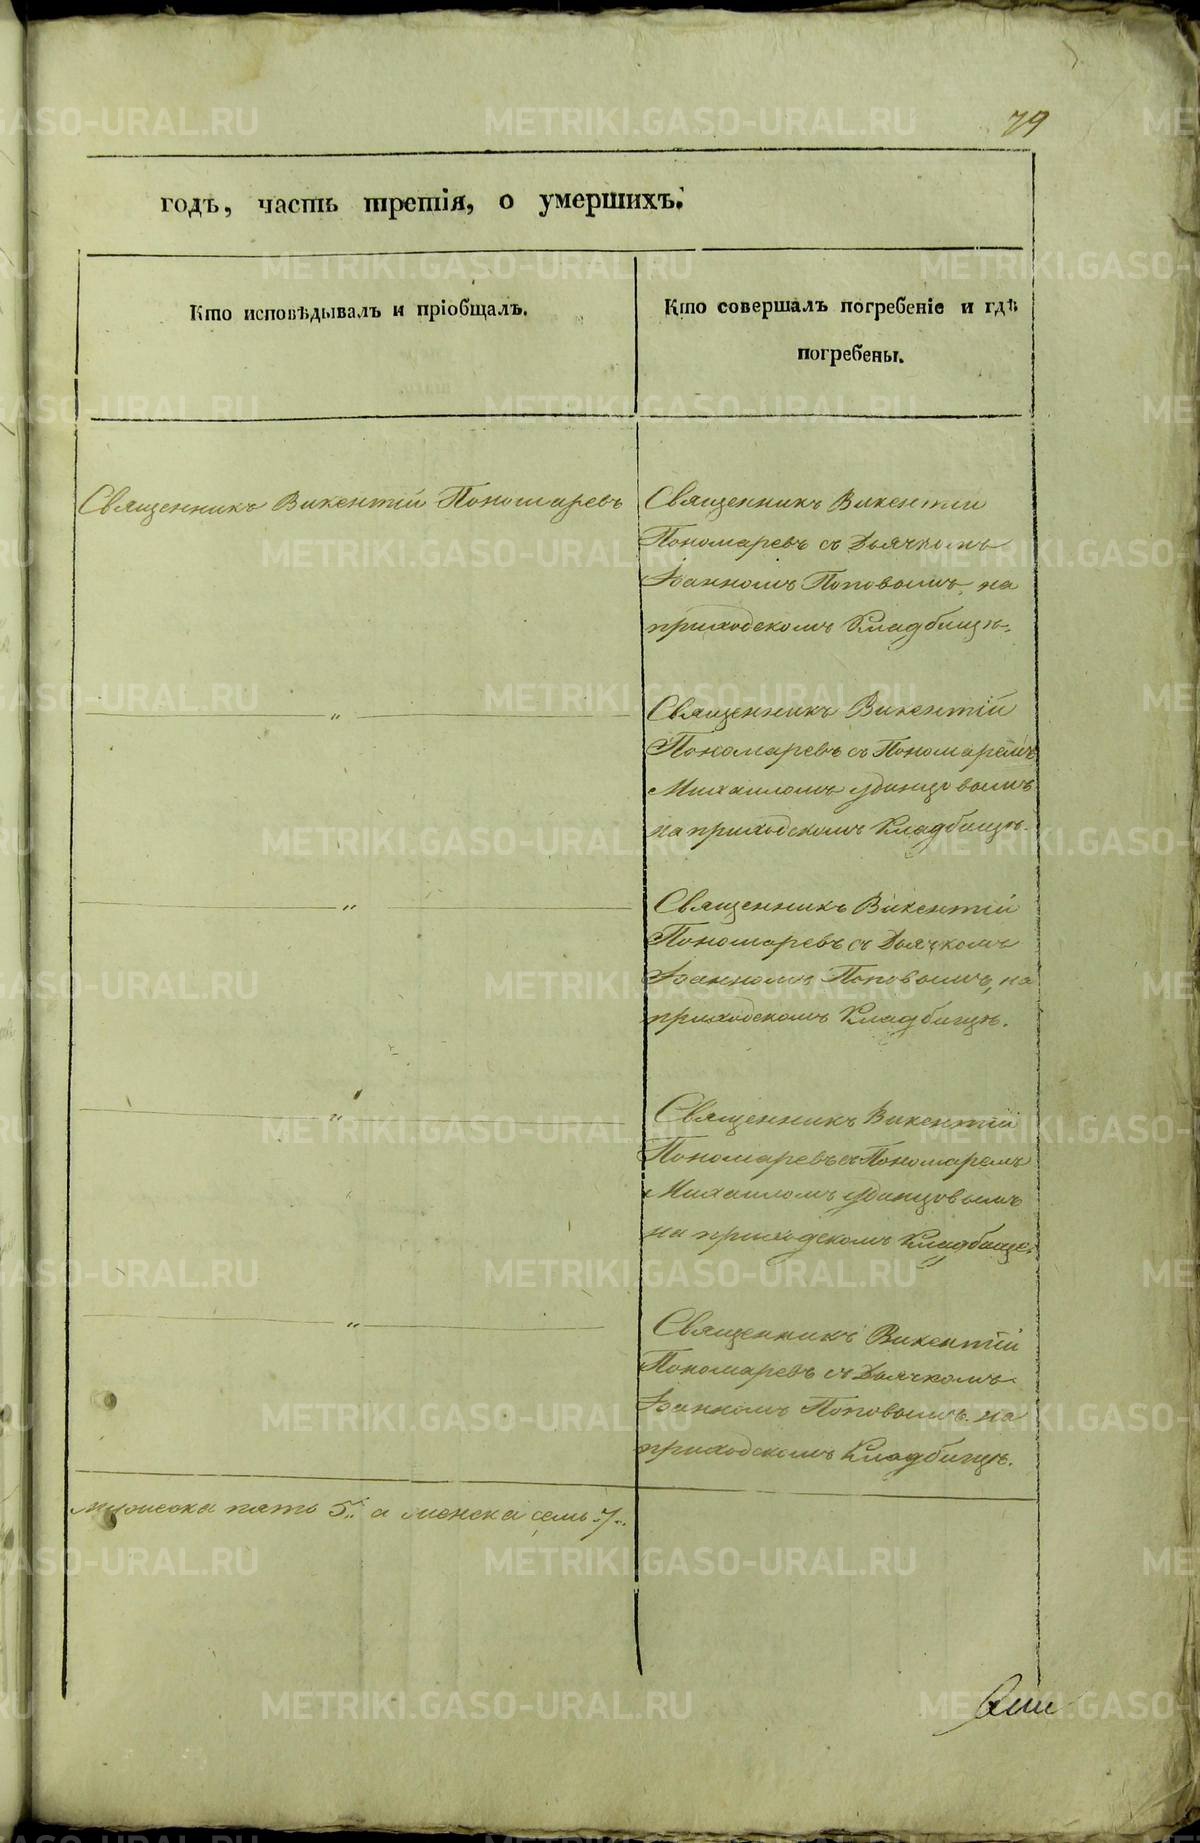 79
годъ, часть третія, о умершихъ.
Кто исповѣдывалъ и пріобщалъ.
Кто совершалъ погребеніе и гдѣ
погребены.
Священникъ Викентій Пономаревъ
Священникъ Викентій
Пономаревъ съ Дьячкомъ
Іоанномъ Поповымъ, на
приходскомъ Кладбищѣ.
„
Священникъ Викентій
Пономаревъ съ Пономаремъ
Михаиломъ Удинцовымъ
на приходскомъ Кладбищѣ.
„
Священникъ Викентій
Пономаревъ съ Дьячкомъ
Іоанномъ Поповымъ, на
приходскомъ Кладбищѣ.
„
Священникъ Викентій
Пономаревъ съ Пономаремъ
Михаиломъ Удинцовымъ
на приходскомъ Кладбище.
„
Священникъ Викентій
Пономаревъ съ Дьячкомъ
Іоанномъ Поповымъ на
приходскомъ Кладбищѣ.
мужеска пять 5. а женска семь 7.
METRIKI.GASO-URAL.RU